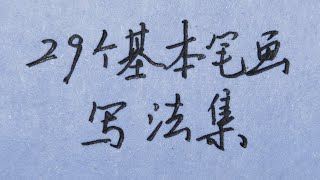 29个基本笔画
写法集